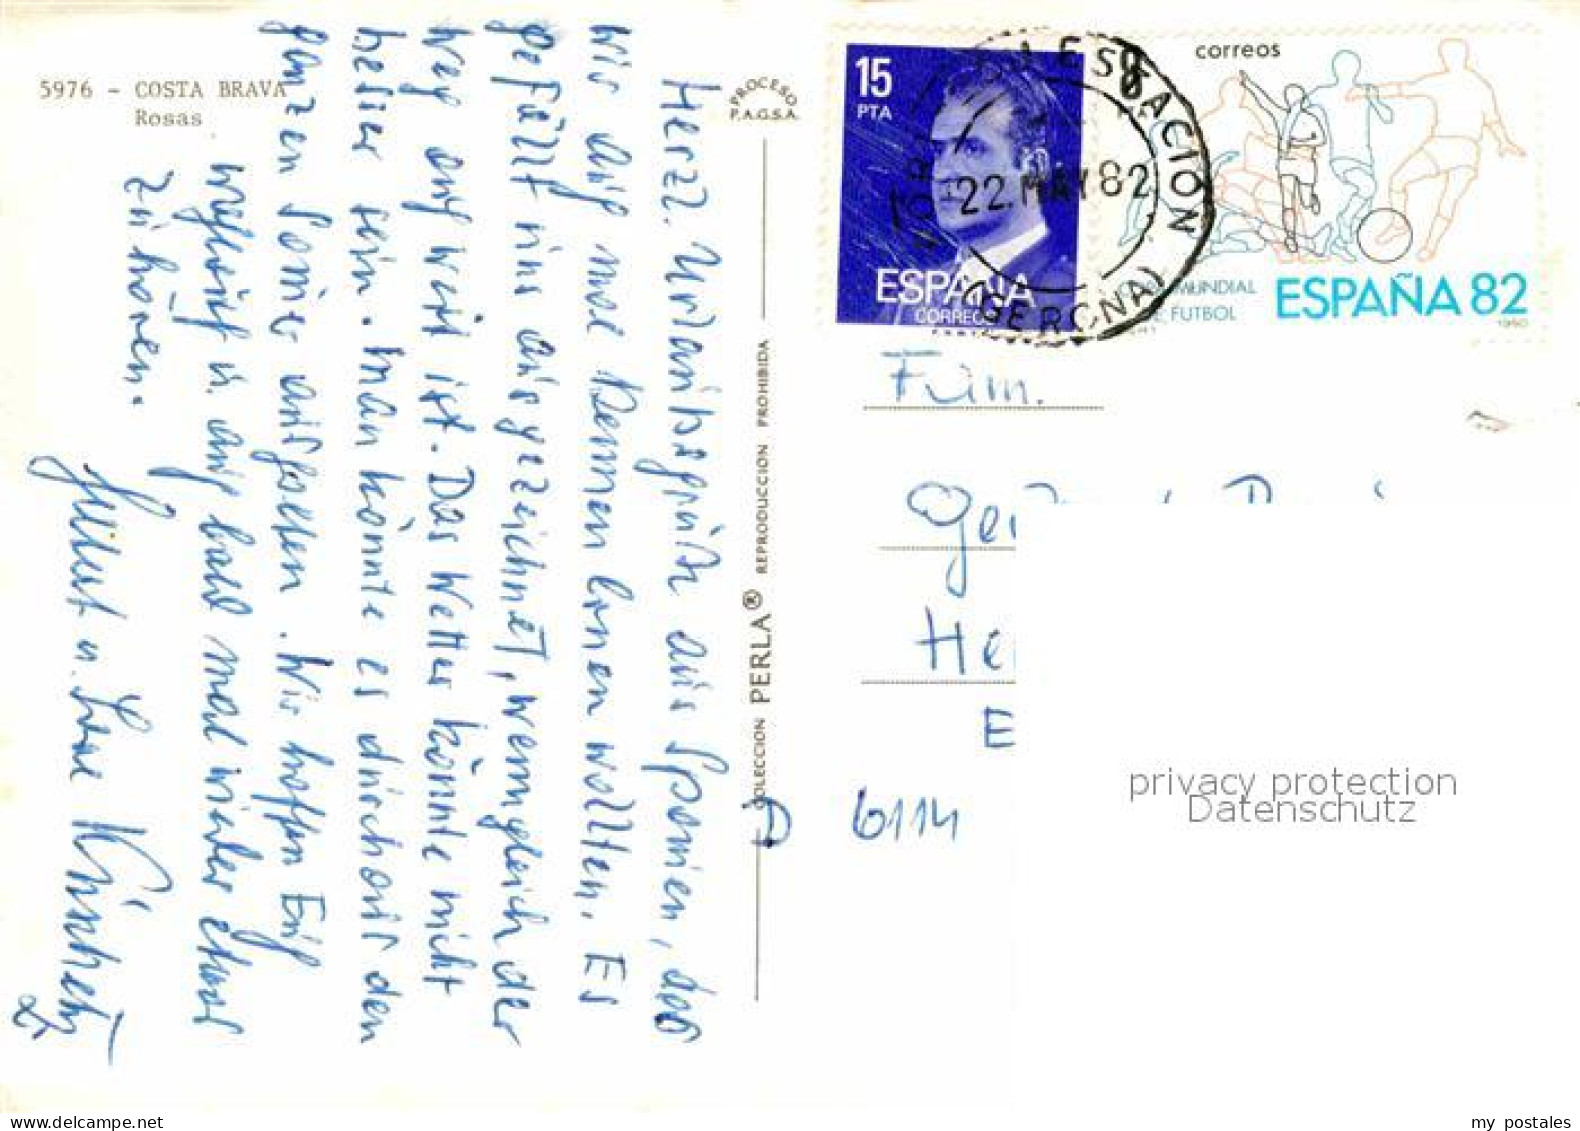 5976 - COSTA BRAVA
Rosas
PROCESO
P.A.G.S.A.
Herzl. Urlaubsgrüße aus Spanien, das
wir auch mal kennen lernen wollten. Es
gefällt uns ausgezeichnet, wenngleich der
Weg auch weit ist. Das Wetter könnte nicht
besser sein. Man könnte es durchaus den
ganzen Sommer aushalten. Wir hoffen Euch
u. auch bald mal wieder etwas
zu hören.
u.
COLECCION PERLA® REPRODUCCION PROHIBIDA
15
PTA
ESPAÑA
CORREOS
correos
8
MUNDIAL
DE FUTBOL
ESPAÑA 82
1980
ESTACION
22 MAY 82
(GERONA)
Fam.
Ger
He
E
D 6114
privacy protection
Datenschutz
my postales